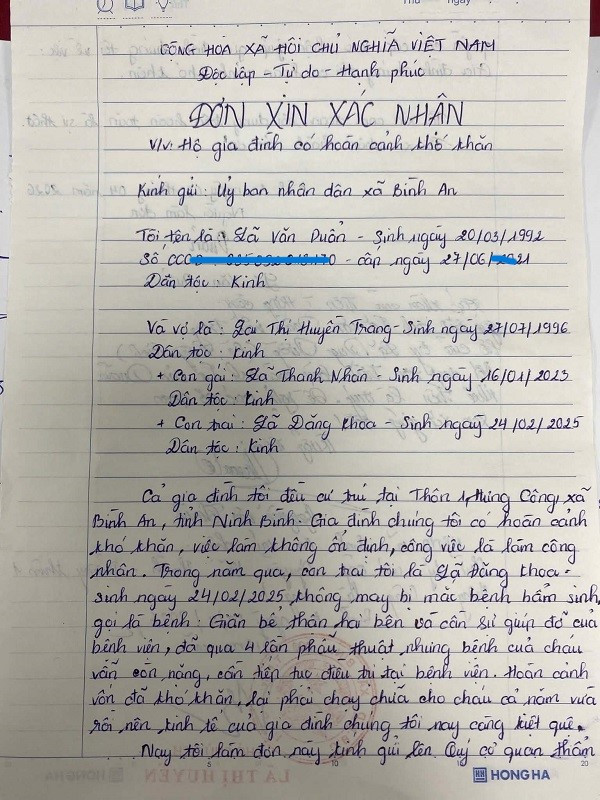 CỘNG HÒA XÃ HỘI CHỦ NGHĨA VIỆT NAM
Độc lập - Tự do - Hạnh phúc
ĐƠN XIN XÁC NHẬN
V/v: Hộ gia đình có hoàn cảnh khó khăn
Kính gửi: Uỷ ban nhân dân xã Bình An
Tôi tên là: Lã Văn Duẩn - Sinh ngày 20/03/1992
Số CCCD - cấp ngày 27/06/
Dân tộc: Kinh
Và vợ là: Lại Thị Huyền Trang - Sinh ngày 27/07/1996
Dân tộc: Kinh
+ Con gái: Lã Thanh Nhàn - Sinh ngày 16/01/2023
Dân tộc: Kinh
+ Con trai: Lã Đăng Khoa - Sinh ngày 24/02/2025
Dân tộc: Kinh
Cả gia đình tôi đều cư trú tại Thôn 1, Hưng Công, xã
Bình An, tỉnh Ninh Bình. Gia đình chúng tôi có hoàn cảnh
khó khăn, việc làm không ổn định, công việc là làm công
nhân. Trong năm qua, con trai tôi là Lã Đăng Khoa -
sinh ngày 24/02/2025, không may bị mắc bệnh bẩm sinh,
gọi là bệnh: Giãn bể thận hai bên và cần sự giúp đỡ của
bệnh viện, đã qua 4 lần phẫu thuật nhưng bệnh của cháu
vẫn còn nặng, cần tiếp tục điều trị tại bệnh viện. Hoàn cảnh
vốn đã khó khăn, lại phải chạy chữa cho cháu cả năm vừa
rồi nên kinh tế của gia đình chúng tôi nay càng kiệt quệ.
Nay tôi làm đơn này kính gửi lên Quý cơ quan thẩm
LÃ THỊ HUYỀN
5
10
20
HH HONG HA